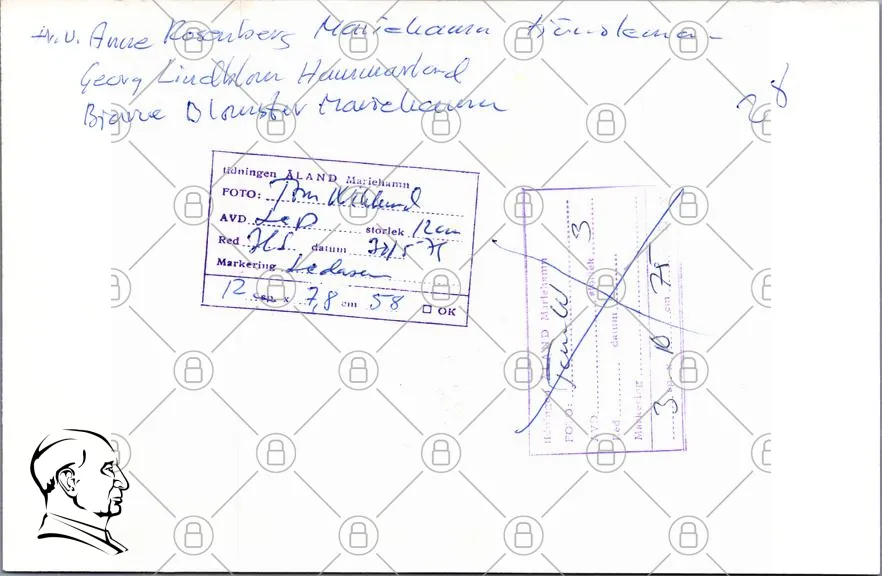 fr.v. Anne Rosenberg Mariehamn
Georg Lindblom Hammarland
Bjarne Blomster Mariehamn
28
tidningen ÅLAND Mariehamn
FOTO: Tom
AVD. Led storlek 12 cm
Red datum 30/5 75
Markering Ledaren
12 cm x 7,8 cm 58 OK
tidningen ÅLAND Mariehamn
FOTO: Tom W
AVD. storlek 3
Red datum
Markering
3 sp. x 10 cm 75